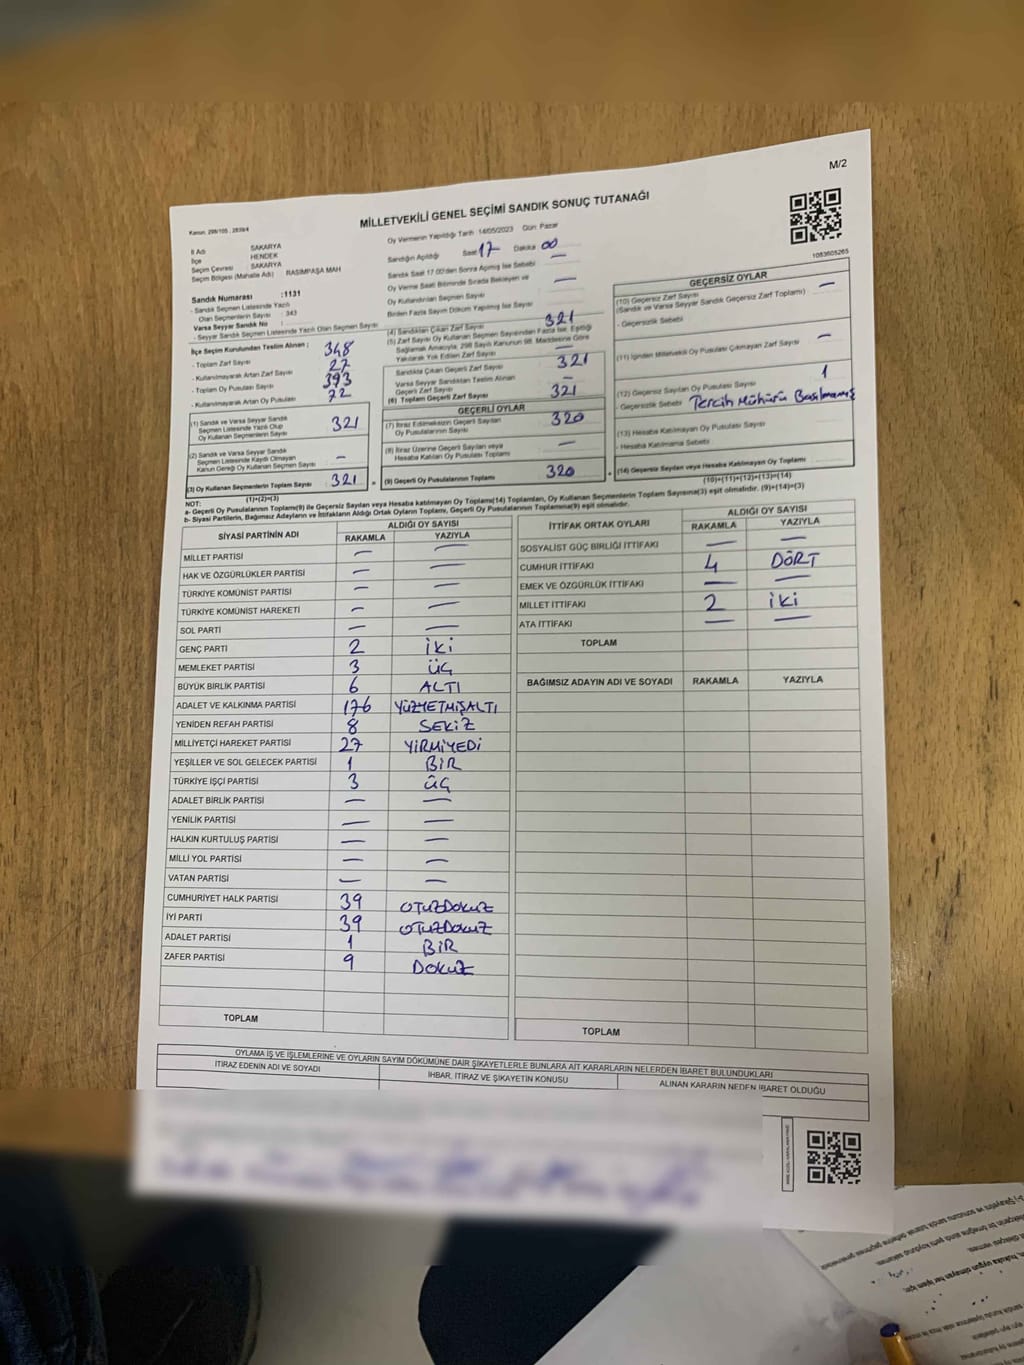 M/2
Kanun: 298/105 , 2839/4
MİLLETVEKİLİ GENEL SEÇİMİ SANDIK SONUÇ TUTANAĞI
İl Adı SAKARYA
İlçe HENDEK
Seçim Çevresi SAKARYA
Seçim Bölgesi (Mahalle Adı) RASIMPAŞA MAH
Sandık Numarası :1131
- Sandık Seçmen Listesinde Yazılı
Olan Seçmenlerin Sayısı : 343
Varsa Seyyar Sandık No
- Seyyar Sandık Seçmen Listesinde Yazılı Olan Seçmen Sayısı
Oy Vermenin Yapıldığı Tarih 14/05/2023 Gün Pazar
Sandığın Açıldığı Saat 17 Dakika 00
Sandık Saat 17.00'den Sonra Açılmış İse Sebebi —
Oy Verme Saati Bitiminde Sırada Bekleyen ve
Oy Kullandırılan Seçmen Sayısı —
Birden Fazla Sayım Döküm Yapılmış İse Sayısı
1083605265
İlçe Seçim Kurulundan Teslim Alınan ;
- Toplam Zarf Sayısı 348
- Kullanılmayarak Artan Zarf Sayısı 27
- Toplam Oy Pusulası Sayısı 393
- Kullanılmayarak Artan Oy Pusulası Sayısı 72
(1) Sandık ve Varsa Seyyar Sandık
Seçmen Listesinde Yazılı Olup
Oy Kullanan Seçmenlerin Sayısı 321
(2) Sandık ve Varsa Seyyar Sandık
Seçmen Listesinde Kaydı Olmayan
Kanun Gereği Oy Kullanan Seçmen Sayısı —
(3) Oy Kullanan Seçmenlerin Toplam Sayısı 321
(1)+(2)=(3)
(4) Sandıktan Çıkan Zarf Sayısı 321
(5) Zarf Sayısı Oy Kullanan Seçmen Sayısından Fazla İse, Eşitliği
Sağlamak Amacıyla, 298 Sayılı Kanunun 98. Maddesine Göre
Yakılarak Yok Edilen Zarf Sayısı —
Sandıkta Çıkan Geçerli Zarf Sayısı 321
Varsa Seyyar Sandıktan Teslim Alınan
Geçerli Zarf Sayısı —
(6) Toplam Geçerli Zarf Sayısı 321
GEÇERLİ OYLAR
(7) İtiraz Edilmeksizin Geçerli Sayılan
Oy Pusulalarının Sayısı 320
(8) İtiraz Üzerine Geçerli Sayılan veya
Hesaba Katılan Oy Pusulası Toplamı —
(9) Geçerli Oy Pusulalarının Toplamı 320
GEÇERSİZ OYLAR
(10) Geçersiz Zarf Sayısı
(Sandık ve Varsa Seyyar Sandık Geçersiz Zarf Toplamı) —
- Geçersizlik Sebebi
(11) İçinden Milletvekili Oy Pusulası Çıkmayan Zarf Sayısı —
(12) Geçersiz Sayılan Oy Pusulası Sayısı 1
- Geçersizlik Sebebi Tercih Mühürü Basılmamış
(13) Hesaba Katılmayan Oy Pusulası Sayısı
- Hesaba Katılmama Sebebi
(14) Geçersiz Sayılan veya Hesaba Katılmayan Oy Toplamı
(10)+(11)+(12)+(13)=(14)
NOT:
a- Geçerli Oy Pusulalarının Toplamı(9) ile Geçersiz Sayılan veya Hesaba katılmayan Oy Toplamı(14) Toplamları, Oy Kullanan Seçmenlerin Toplam Sayısına(3) eşit olmalıdır. (9)+(14)=(3)
b- Siyasi Partilerin, Bağımsız Adayların ve İttifakların Aldığı Ortak Oyların Toplamı, Geçerli Oy Pusulalarının Toplamına(9) eşit olmalıdır.
SİYASİ PARTİNİN ADI ALDIĞI OY SAYISI
RAKAMLA YAZIYLA
MİLLET PARTİSİ — —
HAK VE ÖZGÜRLÜKLER PARTİSİ — —
TÜRKİYE KOMÜNİST PARTİSİ — —
TÜRKİYE KOMÜNİST HAREKETİ — —
SOL PARTİ — —
GENÇ PARTİ 2 İKİ
MEMLEKET PARTİSİ 3 ÜÇ
BÜYÜK BİRLİK PARTİSİ 6 ALTI
ADALET VE KALKINMA PARTİSİ 176 YÜZYETMİŞALTI
YENİDEN REFAH PARTİSİ 8 SEKİZ
MİLLİYETÇİ HAREKET PARTİSİ 27 YİRMİYEDİ
YEŞİLLER VE SOL GELECEK PARTİSİ 1 BİR
TÜRKİYE İŞÇİ PARTİSİ 3 ÜÇ
ADALET BİRLİK PARTİSİ — —
YENİLİK PARTİSİ — —
HALKIN KURTULUŞ PARTİSİ — —
MİLLİ YOL PARTİSİ — —
VATAN PARTİSİ — —
CUMHURİYET HALK PARTİSİ 39 OTUZDOKUZ
İYİ PARTİ 39 OTUZDOKUZ
ADALET PARTİSİ 1 BİR
ZAFER PARTİSİ 9 DOKUZ
TOPLAM
İTTİFAK ORTAK OYLARI ALDIĞI OY SAYISI
RAKAMLA YAZIYLA
SOSYALİST GÜÇ BİRLİĞİ İTTİFAKI — —
CUMHUR İTTİFAKI 4 DÖRT
EMEK VE ÖZGÜRLÜK İTTİFAKI — —
MİLLET İTTİFAKI 2 İKİ
ATA İTTİFAKI — —
TOPLAM
BAĞIMSIZ ADAYIN ADI VE SOYADI RAKAMLA YAZIYLA
TOPLAM
OYLAMA İŞ VE İŞLEMLERİNE VE OYLARIN SAYIM DÖKÜMÜNE DAİR ŞİKAYETLERLE BUNLARA AİT KARARLARIN NELERDEN İBARET BULUNDUKLARI
İTİRAZ EDENİN ADI VE SOYADI İHBAR, İTİRAZ VE ŞİKAYETİN KONUSU ALINAN KARARIN NEDEN İBARET OLDUĞU